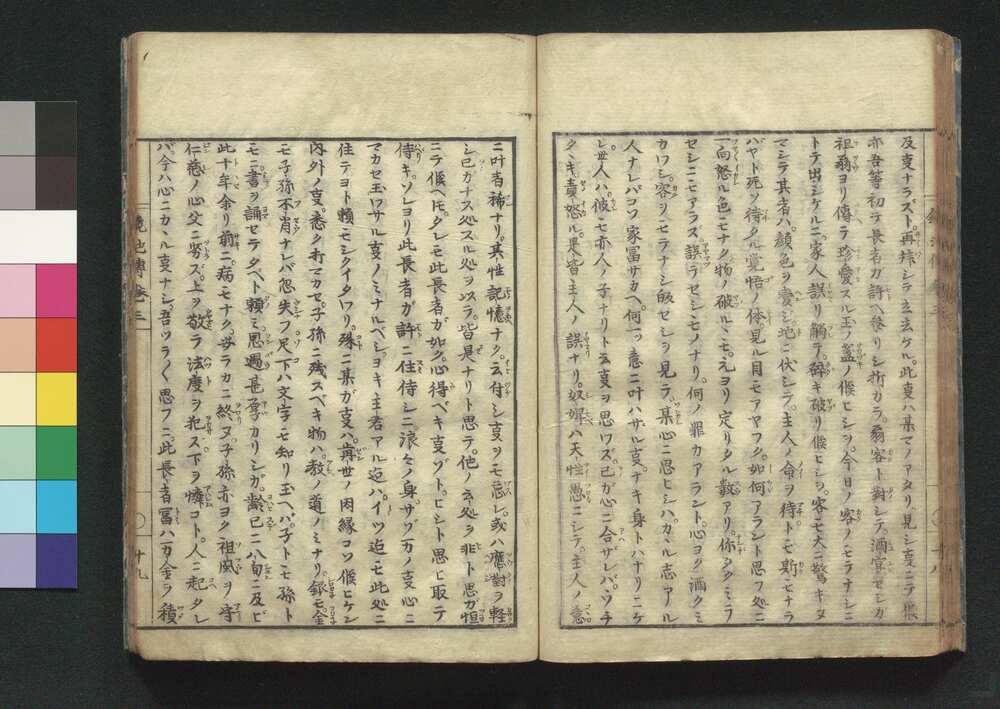 及支ナラスト再拝シテ立去ケル。此事ハ某マノアタリ見シ事ニテ候
亦吾等初テ長者ガ許ヘ参リシ折カラ。翁客ト對シテ。酒宴セシガ
祖翁ヨリ傳ラ珍愛スル玉ノ盃ノ候ヒシヲ。今日ノ客ノモテナシニ
トテ出シケルニ。家人誤リ觸テ。碎キ破リ候ヒシ。客モ大ニ驚キヌ
マシテ其者ハ。顔色ヲ変シ。地ニ伏シテ。主人ノ命ヲ待トモ。斯モナラ
バヤト死ヲ待タル覚悟ノ体。見ル目モアヤフク。如何アラント思フ処ニ
一向怒ル色モナク。物ノ破ルヽモ。元ヨリ定リタル數アリ。你タクミテ
セシニモアラス。誤ラセシモノナリ。何ノ罪カアラント。心ヨク酒クミ
カワシ。客ヲモテナシ皈セシヲ見テ。某心ニ思ヒシハ。カヽル志アル
人ナレバコソ家冨サカヘ。何一ツ意ニ叶ハザル事ナキ身トハナリニケ
レ。世人ハ。彼モ亦人ノ子ナリト云事ヲ思ワズ。己ガ心ニ合ザレバ。ウチ
タヽキ責怒ル。果皆主人ノ誤ナリ。奴婢ハ天性愚ニシテ。主人ノ意
ニ叶者稀ナリ。其性記憶ナク。云付シ事ヲモ忘レ。或ハ應對ヲ軽
シ。已ガナス処スル処ヲバ。皆是ナリト思テ。他ノ云処ヲ非ト思ガ恒
ニテ候ヘ𪜈。タレモ此長者ガ如ク心得ベキ事ゾト。ヒシト思ヒ取テ
侍キ。ソレヨリ此長者ガ許ニ住侍シニ。浪々ノ身。サゾ万ノ事心ニ
マカセ玉ワサル事ノミナルベシ。ヨキ主君アル迄ハ。イツ迄モ此処ニ
住テヨト頼モシクイタワリ。殊ニ某ガ事ハ。再世ノ因縁コソ候ヒケン
内外ノ事。悉ク打マカセ。子孫ニ残スベキ物ハ。教ノ道ノミナリ。銀モ。金
モ。子孫不肖ナレバ。忽失フニ足ト。下ハ文字モ知リ玉ヘバ。子トモ孫ト
モニ。書ヲ誦セテタベト頼ミ。思遇甚厚カリシガ。齢已ニ八旬ニ及ヒ
此十年余リ前ニ。病モナク。安ラカニ終ヌ。子孫亦ヨク祖風ヲ守
仁慈ノ心父ニ劣ズ。上ヲ敬テ法度ヲ犯ズ。下ヲ憐コト。人ニ起タレ
バ。今ハ心ニカヽル事ナシ。吾ツラ〳〵思フニ。此長者冨ハ万金ヲ積
鏡池傳巻三
十九